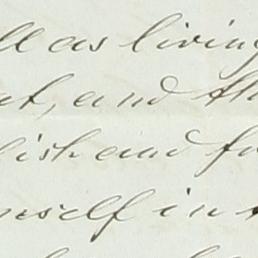 ll as living
at, and th
lish and fo
mself in